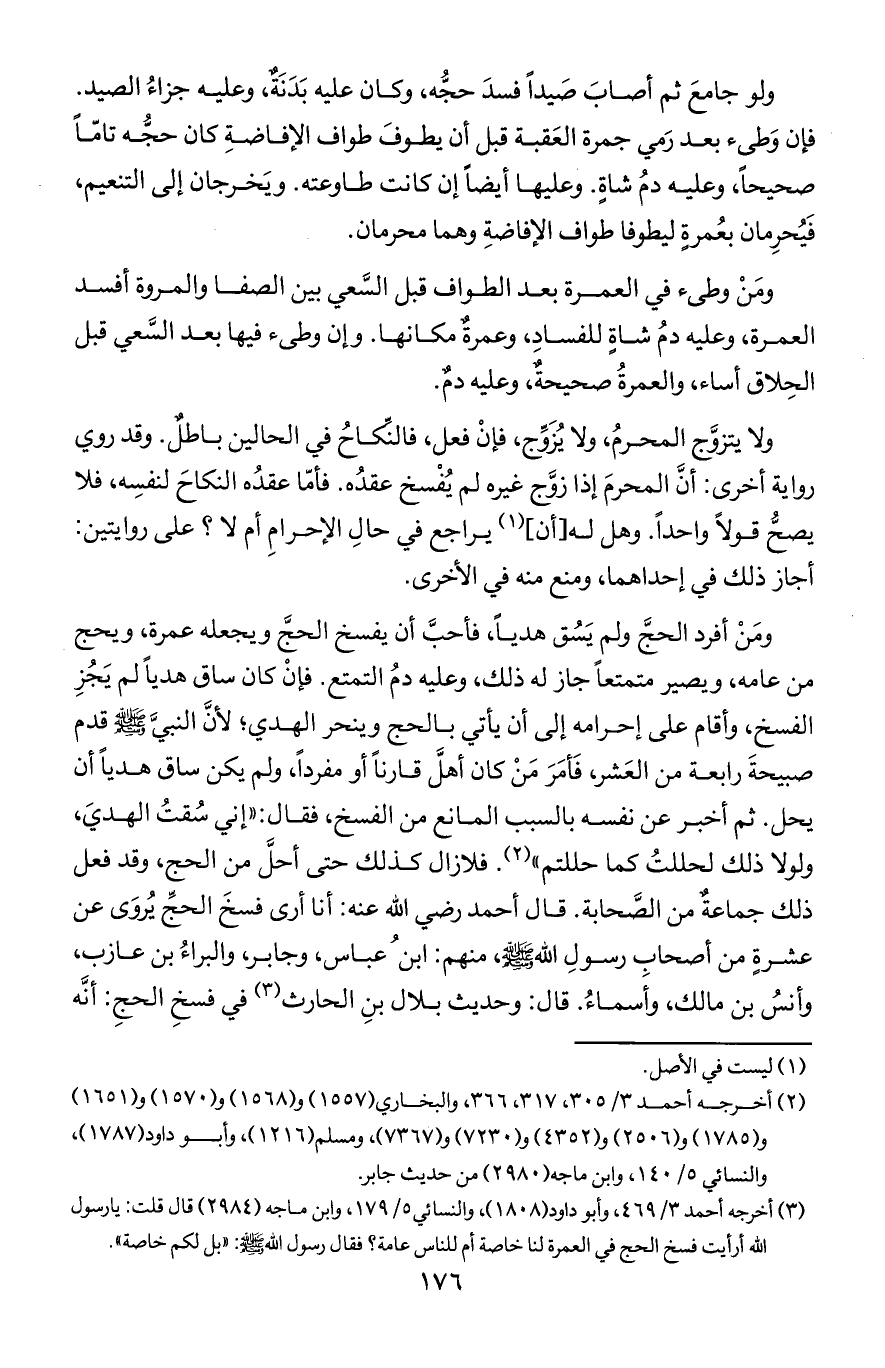 ولو جامعَ ثم أصابَ صَيداً فسدَ حجُّه، وكان عليه بَدَنَةٌ، وعليه جزاءُ الصيد.
فإن وَطىء بعد رَمي جمرة العَقبة قبل أن يطوفَ طواف الإفاضةِ كان حجُّه تامّاً
صحيحاً، وعليه دمُ شاةٍ. وعليها أيضاً إن كانت طاوعته. ويَخرجان إلى التنعيم،
فَيُحرِمان بعُمرةٍ ليطوفا طواف الإفاضةِ وهما محرمان.
ومَنْ وطىء في العمرة بعد الطواف قبل السَّعي بين الصفا والمروة أفسد
العمرة، وعليه دمُ شاةٍ للفسادِ، وعمرةٌ مكانها. وإن وطىء فيها بعد السَّعي قبل
الحِلاق أساء، والعمرةُ صحيحةٌ، وعليه دمٌ.
ولا يتزوَّج المحرمُ، ولا يُزَوِّج، فإنْ فعل، فالنِّكاحُ في الحالين باطلٌ. وقد روي
رواية أخرى: أنَّ المحرمَ إذا زوَّج غيره لم يُفْسخ عقدُه. فأمّا عقدُه النكاحَ لنفسِه، فلا
يصحُّ قولاً واحداً. وهل له[أن](١) يراجع في حالِ الإحرامِ أم لا ؟ على روايتين:
أجاز ذلك في إحداهما، ومنع منه في الأخرى.
ومَنْ أفرد الحجَّ ولم يَسُق هدياً، فأحبَّ أن يفسخ الحجَّ ويجعله عمرة، ويحج
من عامه، ويصير متمتعاً جاز له ذلك، وعليه دمُ التمتع. فإنْ كان ساق هدياً لم يَجُزِ
الفسخ، وأقام على إحرامه إلى أن يأتي بالحج وينحر الهدي؛ لأنَّ النبيَّ ﷺ قدم
صبيحةَ رابعة من العَشر، فَأمَرَ مَنْ كان أهلَّ قارناً أو مفرداً، ولم يكن ساق هدياً أن
يحل. ثم أخبر عن نفسه بالسبب المانع من الفسخ، فقال:«إني سُقتُ الهديَ،
ولولا ذلك لحللتُ كما حللتم»(٢). فلازال كذلك حتى أحلَّ من الحج، وقد فعل
ذلك جماعةٌ من الصَّحابة. قال أحمد رضي الله عنه: أنا أرى فسخَ الحجِّ يُروَى عن
عشرةٍ من أصحابِ رسولِ اللهﷺ، منهم: ابنُ عباس، وجابر، والبراءُ بن عازب،
وأنسُ بن مالك، وأسماءُ. قال: وحديث بلال بنِ الحارث(٣) في فسخِ الحجِ: أنَّه
(١) ليست في الأصل.
(٢) أخرجه أحمد ٣/ ٣٠٥، ٣١٧، ٣٦٦، والبخاري(١٥٥٧) و(١٥٦٨) و(١٥٧٠) و(١٦٥١)
و(١٧٨٥) و(٢٥٠٦) و(٤٣٥٢) و(٧٢٣٠) و(٧٣٦٧)، ومسلم(١٢١٦)، وأبو داود(١٧٨٧)،
والنسائي ٥/ ١٤٠، وابن ماجه(٢٩٨٠) من حديث جابر.
(٣) أخرجه أحمد ٣/ ٤٦٩، وأبو داود(١٨٠٨)، والنسائي٥/ ١٧٩، وابن ماجه (٢٩٨٤) قال قلت: يارسول
الله أرأيت فسخ الحج في العمرة لنا خاصة أم للناس عامة؟ فقال رسول اللهﷺ: «بل لكم خاصة».
١٧٦